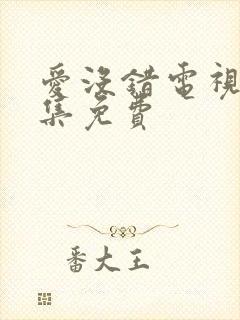 愛沒錯電視
集免費
番大王